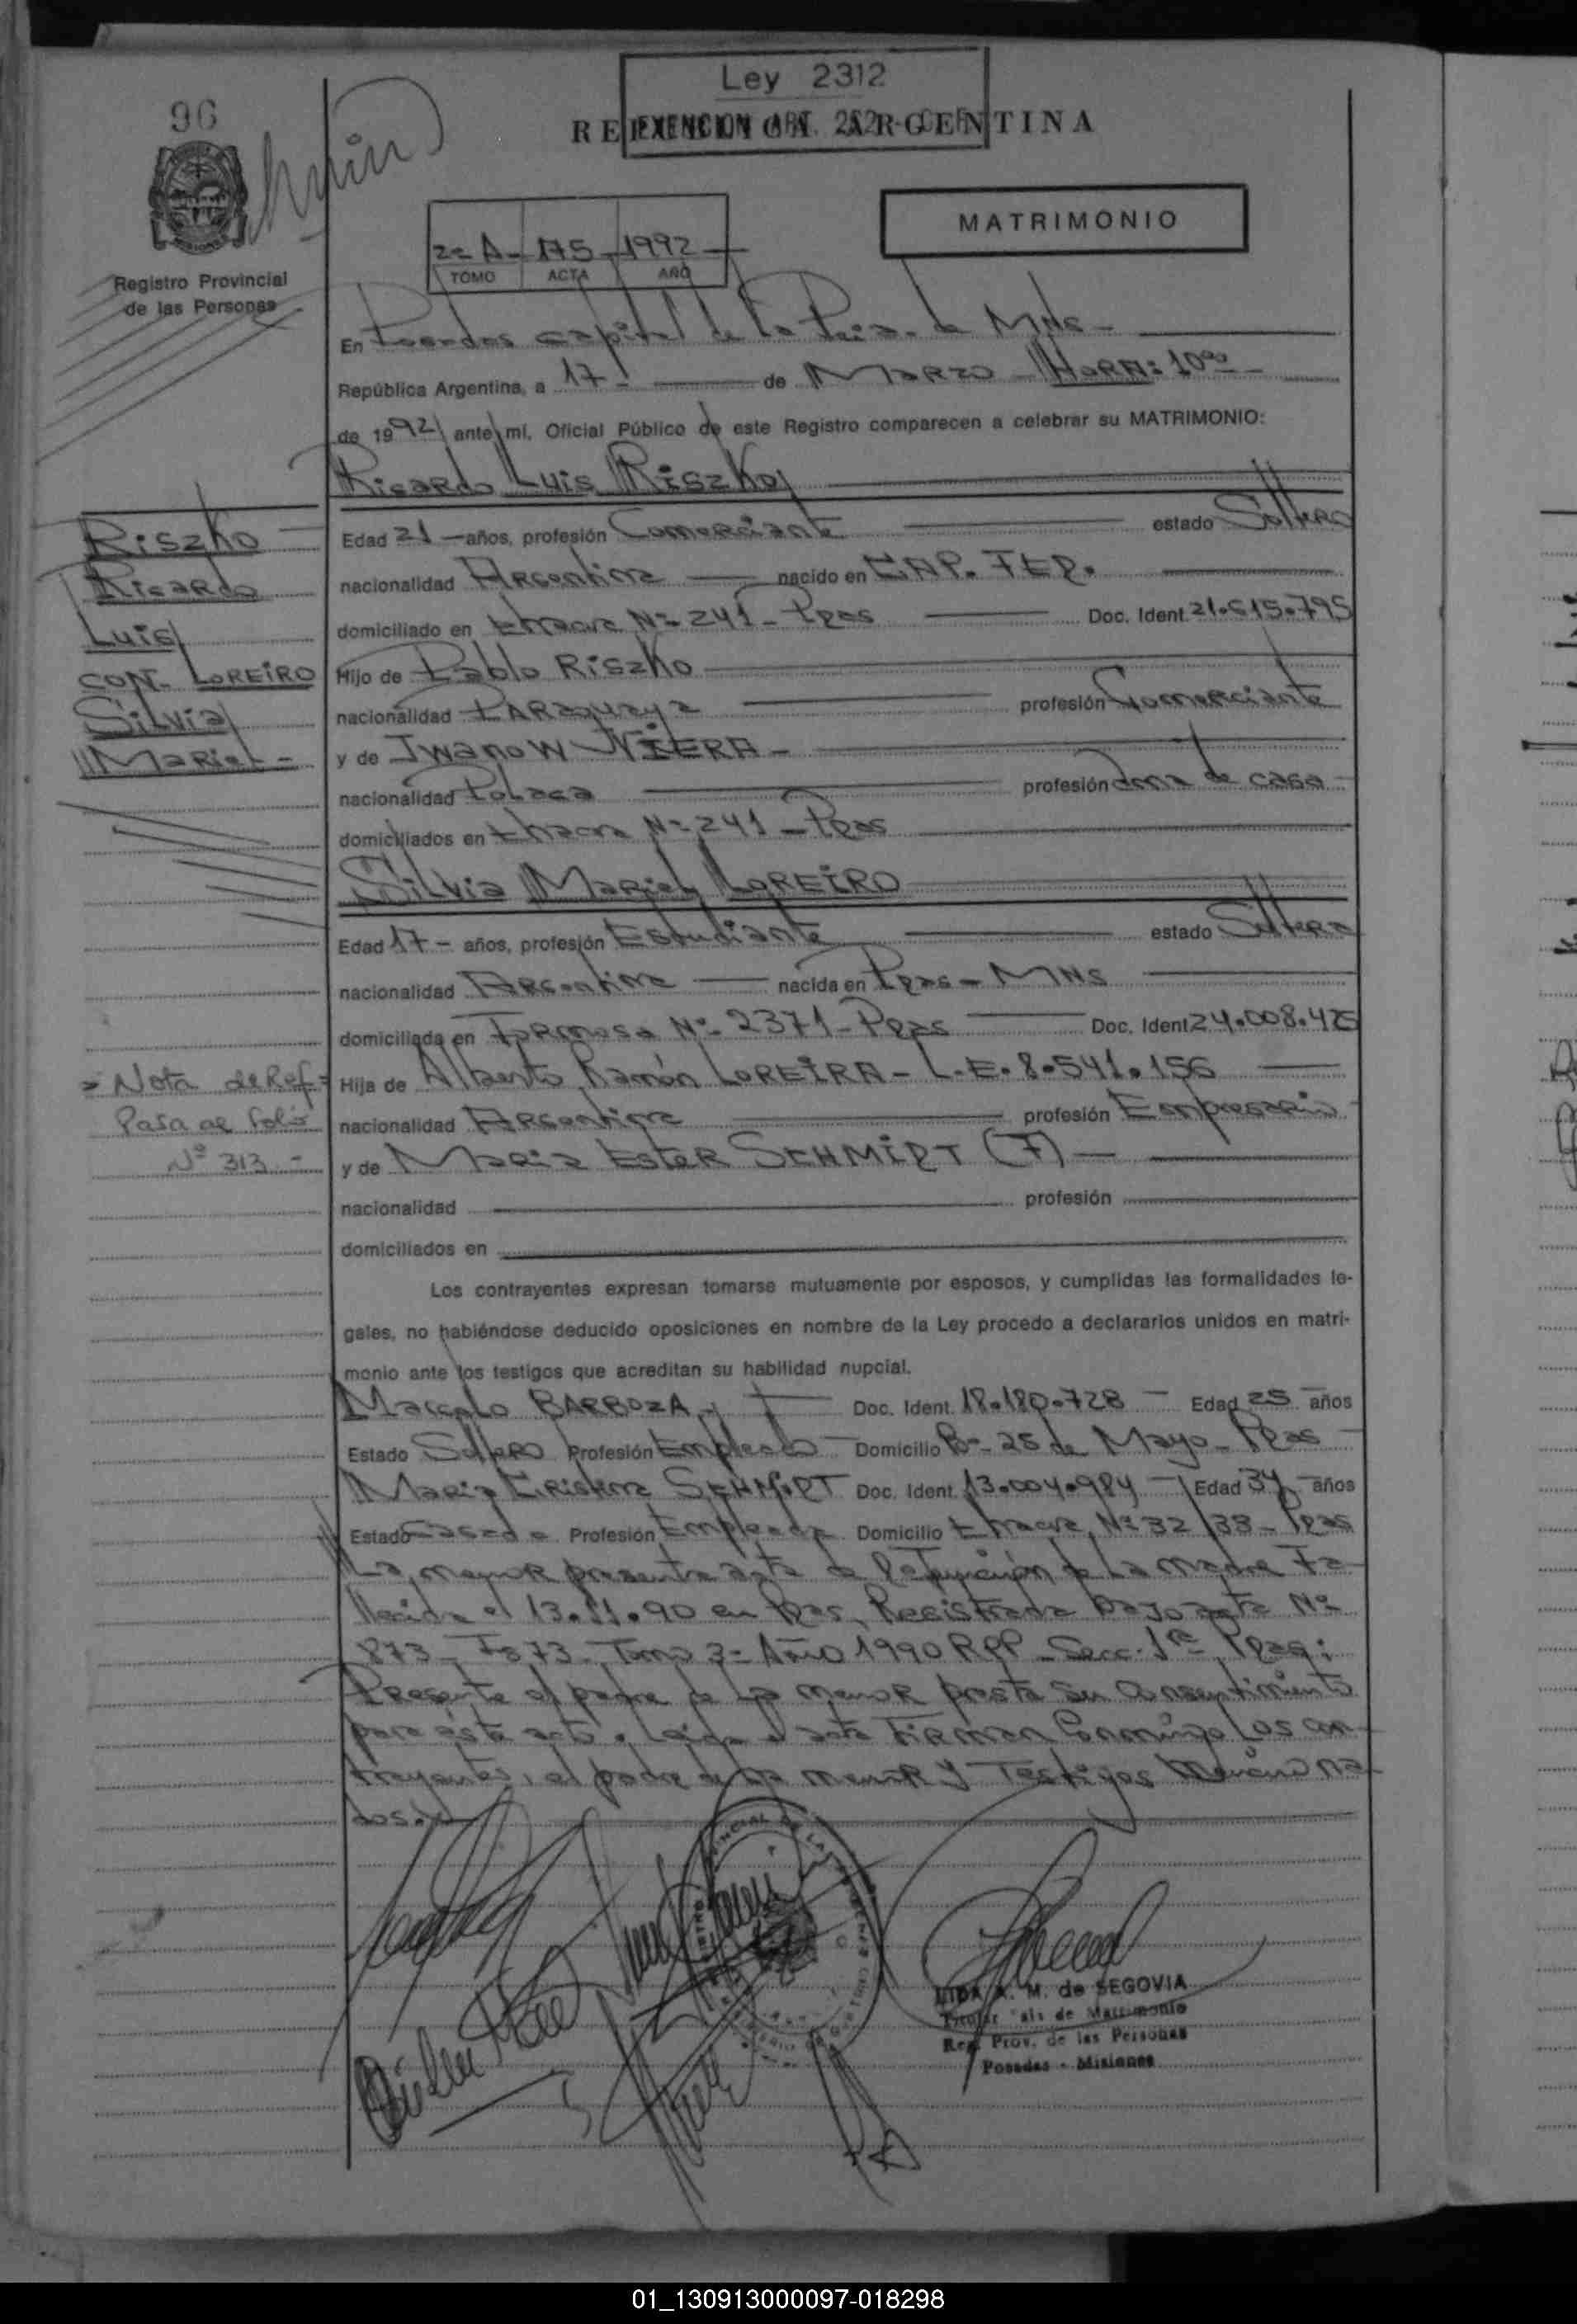 96
Ley 2312
EXENCION ART. 252
MATRIMONIO
2º A - 175 - 1992
TOMO ACTA AÑO
Registro Provincial
de las Personas
En Posadas capital de la Pcia. de Mnes -
República Argentina, a 17 - de Marzo - Hora: 10ºº -
de 1992 ante mí, Oficial Público de este Registro comparecen a celebrar su MATRIMONIO:
Ricardo Luis Riszko
Riszko
Ricardo
Luis
con. Loreiro
Silvia
Mariel -
Edad 21 - años, profesión Comerciante estado Soltero
nacionalidad Argentina nacido en CAP. FED.
domiciliado en Chacra Nº 241 - Pdas Doc. Ident. 21.615.795
Hijo de Pablo Riszko
nacionalidad Paraguaya profesión Comerciante
y de Iwanow NIERA -
nacionalidad Polaca profesión ama de casa
domiciliados en Chacra Nº 241 - Pdas
Silvia Mariel LOREIRO
Edad 17 - años, profesión Estudiante estado Soltera
nacionalidad Argentina nacida en Pdas - MNS
domiciliada en Formosa Nº 2371 - Pdas Doc. Ident 24.008.425
Hija de Alberto Ramón LOREIRA - L.E. 8.541.156
nacionalidad Argentina profesión Empresario
y de Maria Ester SCHMIDT (F) -
nacionalidad profesión
domiciliados en
= Nota de Ref =
Pasa al folio
Nº 313 -
Los contrayentes expresan tomarse mutuamente por esposos, y cumplidas las formalidades le-
gales, no habiéndose deducido oposiciones en nombre de la Ley procedo a declararlos unidos en matri-
monio ante los testigos que acreditan su habilidad nupcial.
Marcelo BARBOZA Doc. Ident. 18.180.728 - Edad 25 años
Estado Soltero Profesión Empleado - Domicilio Bº 25 de Mayo - Pdas
Maria Cristina SCHMIDT Doc. Ident. 13.004.984 - Edad 34 años
Estado Casada Profesión Empleada Domicilio Chacra Nº 32/33 - Pdas
La menor presenta acta de Defunción de la madre Fa-
llecida el 13.11.90 en Pdas, Registrada bajo acta Nº
873 - Fº 73 - Tomo 3º Año 1990 RPP - Secc. 1ra Pdas;
Presente el padre de la menor presta su consentimiento
para éste acto. Leída el acta Firman Conmigo los con-
trayentes, el padre de la menor y Testigos Menciona-
dos.
A. M. de SEGOVIA
Titular de Matrimonio
Reg. Prov. de las Personas
Posadas - Misiones
01_130913000097-018298